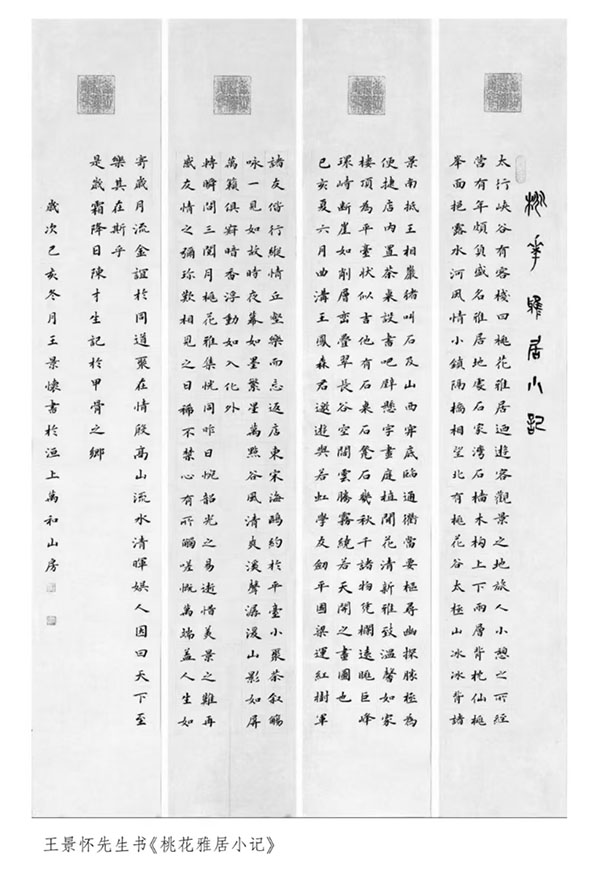 桃花雅居小記
太行峽谷有客棧曰桃花雅居迺遊客觀景之地旅人小憩之所經
營有年頗負盛名雅居地處石家灣石橋木构上下兩層背枕仙桃
峯面挹露水河風情小鎮隔橋相望北有桃花谷太極山冰冰背諸
景南抵王相巖豬叫石及山西穽底臨通衢當要樞尋幽探勝極為
便捷店內置茶桌設書吧壁懸字畫庭植閒花清新雅致溫馨如家
樓頂為平臺狀似舌他有石桌石凳石幾秋千諸物凭欄遠眺巨峰
環峙斷崖如削層巒疊翠長谷空闊雲騰霧繞若天開之畫圖也
己亥夏六月曲溝王鳳森君邀遊與若虹學友劍平國梁運紅樹軍
諸友偕行縱情丘壑樂而忘返店東宋海鷗約於平臺小聚茶叙觴
咏一見如故時夜幕如墨繁星萬點谷風清爽溪聲潺湲山影如屏
萬籟俱寂暗香浮動如入化外
轉瞬間三閱月桃花雅集恍同昨日惋韶光之易逝惜美景之難再
感友情之彌珍歎相見之日稀不禁心有所觸嗟慨萬端蓋人生如
寄歲月流金誼於同道聚在情殷高山流水清暉娛人因曰天下至
樂其在斯乎
是歲霜降日陳才生記於甲骨之鄉
歲次己亥冬月王景懷書於洹上萬和山房
王景怀先生书《桃花雅居小记》